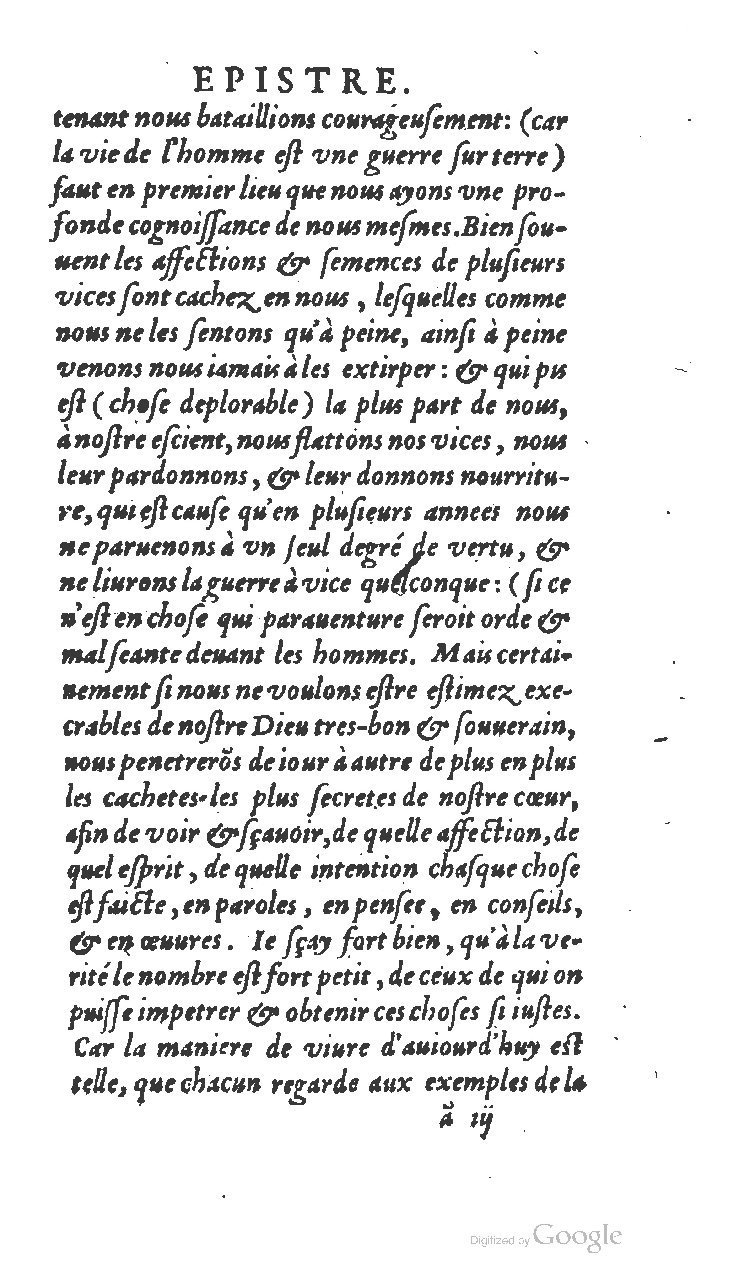 EPISTRE.
tenant nous bataillions courageuſement: (car
la vie de l'homme eſt vne guerre ſur terre)
faut en premier lieu que nous ayons vne pro-
fonde cognoiſſance de nous meſmes. Bien ſou-
uent les affections & ſemences de pluſieurs
vices ſont cachez en nous, leſquelles comme
nous ne les ſentons qu'à peine, ainſi à peine
venons nous iamais à les extirper: & qui pis
eſt (choſe deplorable) la plus part de nous,
à noſtre eſcient, nous flattons nos vices, nous
leur pardonnons, & leur donnons nourritu-
re, qui eſt cauſe qu'en pluſieurs annees nous
ne paruenons à vn ſeul degré de vertu, &
ne liurons la guerre à vice quelconque: (ſi ce
n'eſt en choſe qui parauenture ſeroit orde &
malſeante deuant les hommes. Mais certai-
nement ſi nous ne voulons eſtre eſtimez exe-
crables de noſtre Dieu tres-bon & ſouuerain,
nous penetrerõs de iour à autre de plus en plus
les cachetes-les plus ſecretes de noſtre cœur,
afin de voir & ſçauoir, de quelle affection, de
quel eſprit, de quelle intention chaſque choſe
eſt faicte, en paroles, en penſee, en conſeils,
& en œuures. Ie ſçay fort bien, qu'à la ve-
rité le nombre eſt fort petit, de ceux de qui on
puiſſe impetrer & obtenir ces choſes ſi iuſtes.
Car la maniere de viure d'auiourd'huy eſt
telle, que chacun regarde aux exemples de la
ã iij
Digitized by Google